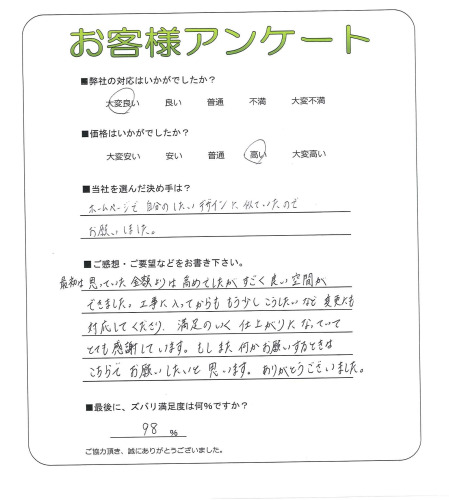 お客様アンケート
■弊社の対応はいかがでしたか?
大変良い 良い 普通 不満 大変不満
■価格はいかがでしたか?
大変安い 安い 普通 高い 大変高い
■当社を選んだ決め手は?
ホームページで 自分のしたいデザインに似ていたので
お願いしました。
■ご感想・ご要望などをお書き下さい。
最初は思っていた金額よりは高めでしたが、すごく良い空間が
できました。工事に入ってからも もう少しこうしたいなど 変更にも
対応してくださり、満足のいく仕上がりになっていて
とても感謝しています。もしまた何かお願いする時は
こちらでお願いしたいと思います。ありがとうございました。
■最後に、ズバリ満足度は何%ですか?
98 %
ご協力頂き、誠にありがとうございました。